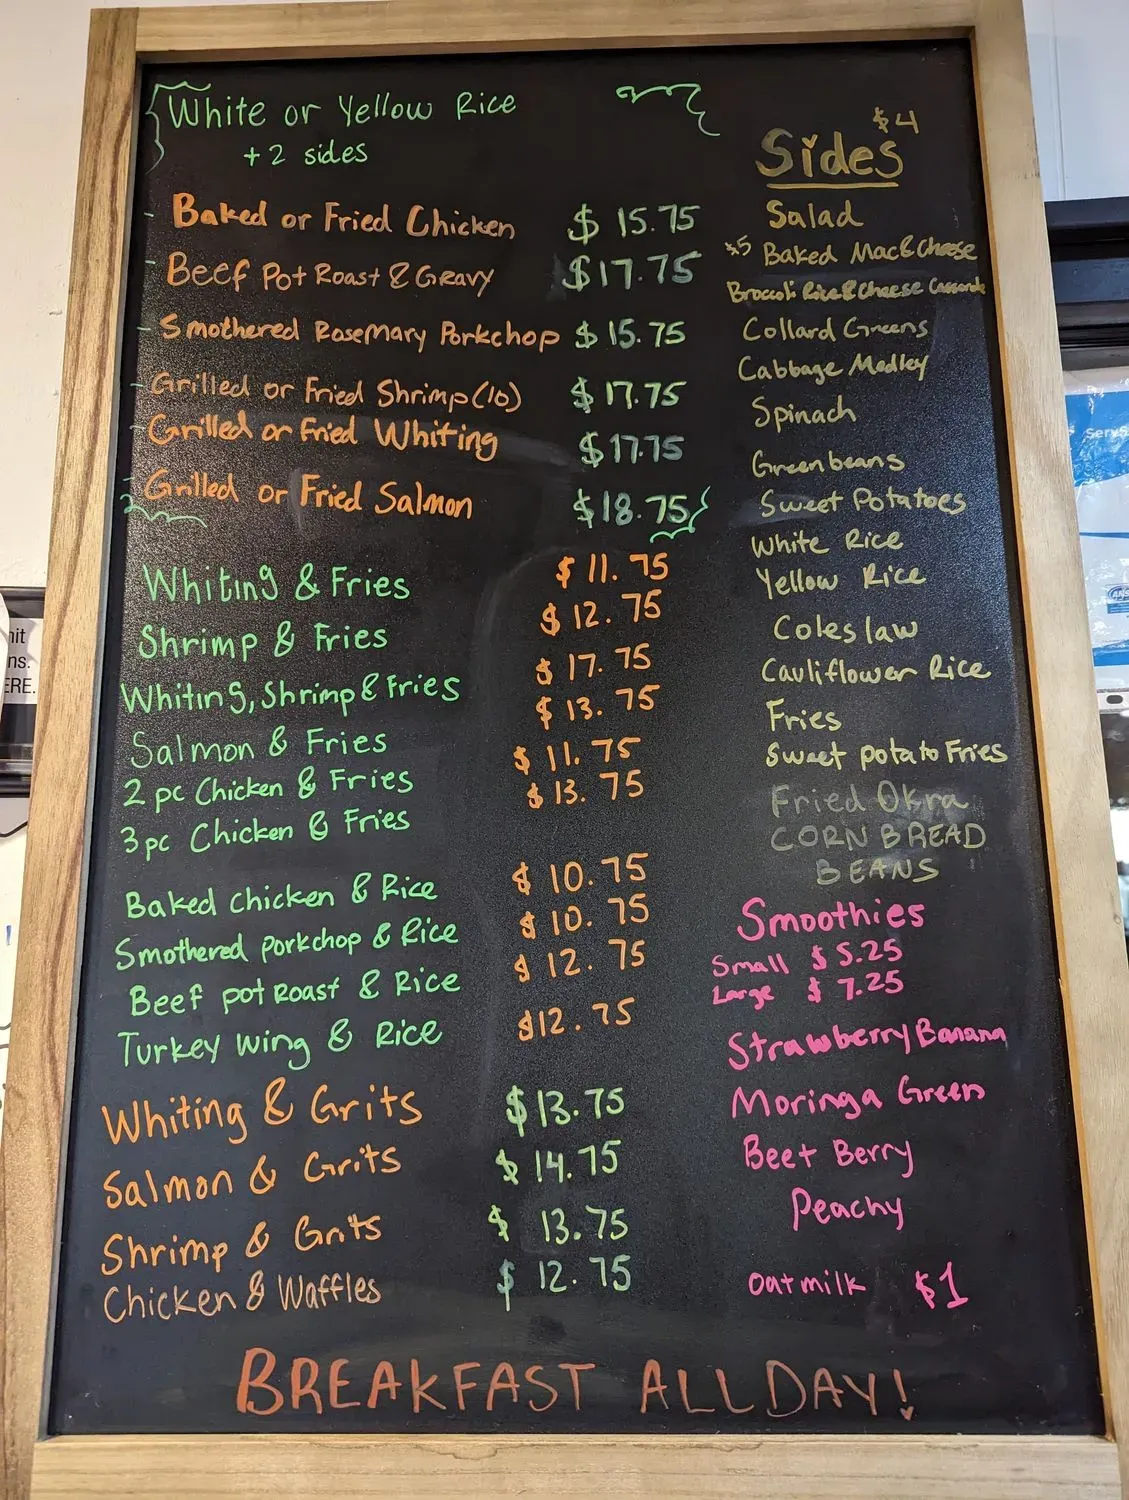 White or Yellow Rice
+ 2 sides
- Baked or Fried Chicken $ 15.75
- Beef Pot Roast & Gravy $17.75
- Smothered Rosemary Porkchop $ 15.75
- Grilled or Fried Shrimp (10) $ 17.75
- Grilled or Fried Whiting $17.75
- Grilled or Fried Salmon $18.75
Whiting & Fries $ 11.75
Shrimp & Fries $ 12.75
Whiting, Shrimp & Fries $ 17.75
Salmon & Fries $ 13.75
2 pc Chicken & Fries $ 11.75
3 pc Chicken & Fries $ 13.75
Baked chicken & Rice $ 10.75
Smothered porkchop & Rice $ 10.75
Beef pot Roast & Rice $ 12.75
Turkey wing & Rice $12.75
Whiting & Grits $13.75
Salmon & Grits $ 14.75
Shrimp & Grits $ 13.75
Chicken & Waffles $ 12.75
$4
Sides
Salad
$5 Baked Mac & Cheese
Broccoli Rice & Cheese Casserole
Collard Greens
Cabbage Medley
Spinach
Greenbeans
Sweet Potatoes
White Rice
Yellow Rice
Coleslaw
Cauliflower Rice
Fries
Sweet potato Fries
Fried Okra
CORN BREAD
BEANS
Smoothies
Small $ 5.25
Large $ 7.25
Strawberry Banana
Moringa Green
Beet Berry
Peachy
oatmilk $1
BREAKFAST ALL DAY!
ERE.